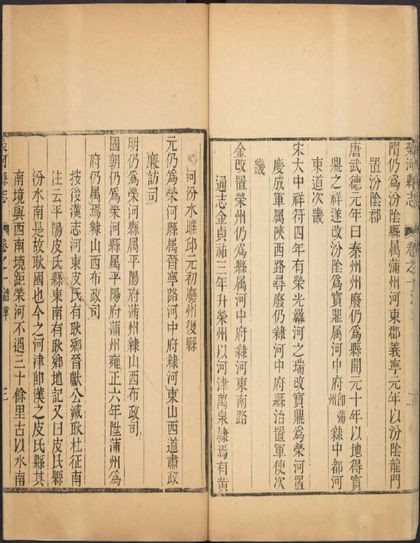 榮河縣志 卷之一
隋仍爲汾陰縣屬蒲州河東郡義寧元年以龍門
置汾陰郡
唐武德元年曰秦州州廢仍爲縣開元十年以地得寶
鼎之祥遂改汾陰爲寶鼎屬河中府 隸中都河
東道次畿
宋大中祥符四年有榮光羃河之瑞改寶鼎爲榮河置
慶成軍屬陝西路尋廢仍隸河中府縣治置軍使次
畿
金改置榮州仍爲縣屬河中府隸河東南路
通志金貞祐三年升榮州以河津萬泉隸焉有黄
河汾水睢邱元初廢州復縣
元仍爲榮河縣屬晉寧路河中府隸河東山西道肅政
廉訪司
明仍爲榮河縣屬平陽府蒲州隸山西布政司
國朝仍爲榮河縣屬平陽府蒲州雍正六年陞蒲州爲
府仍屬焉隸山西布政司
按後漢志河東皮氏有耿鄉晉獻公滅耿杜征南
注云平陽皮氏縣東南有耿鄉地記又曰皮氏縣
汾水南是故耿國也今之河津卽漢之皮氏縣其
南境與西南境距榮河不過三十餘里古以水南
河縣志 卷之一 沿革 三